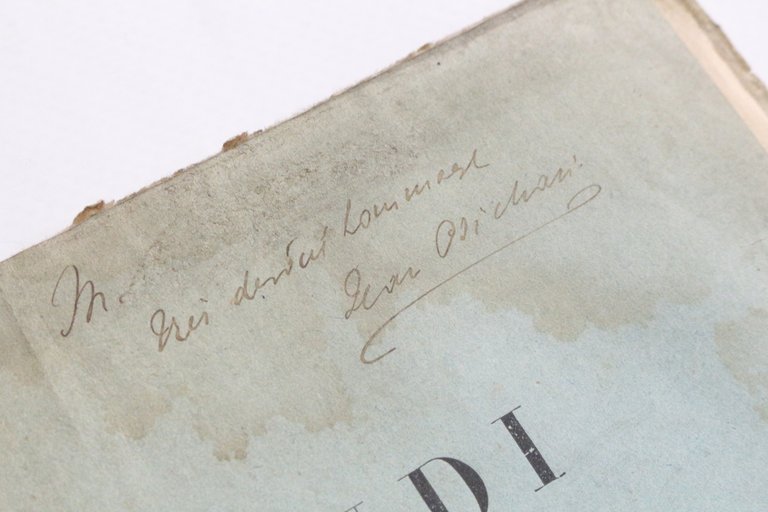 M.
très dévoué hommage
Jean Psichari
NDI